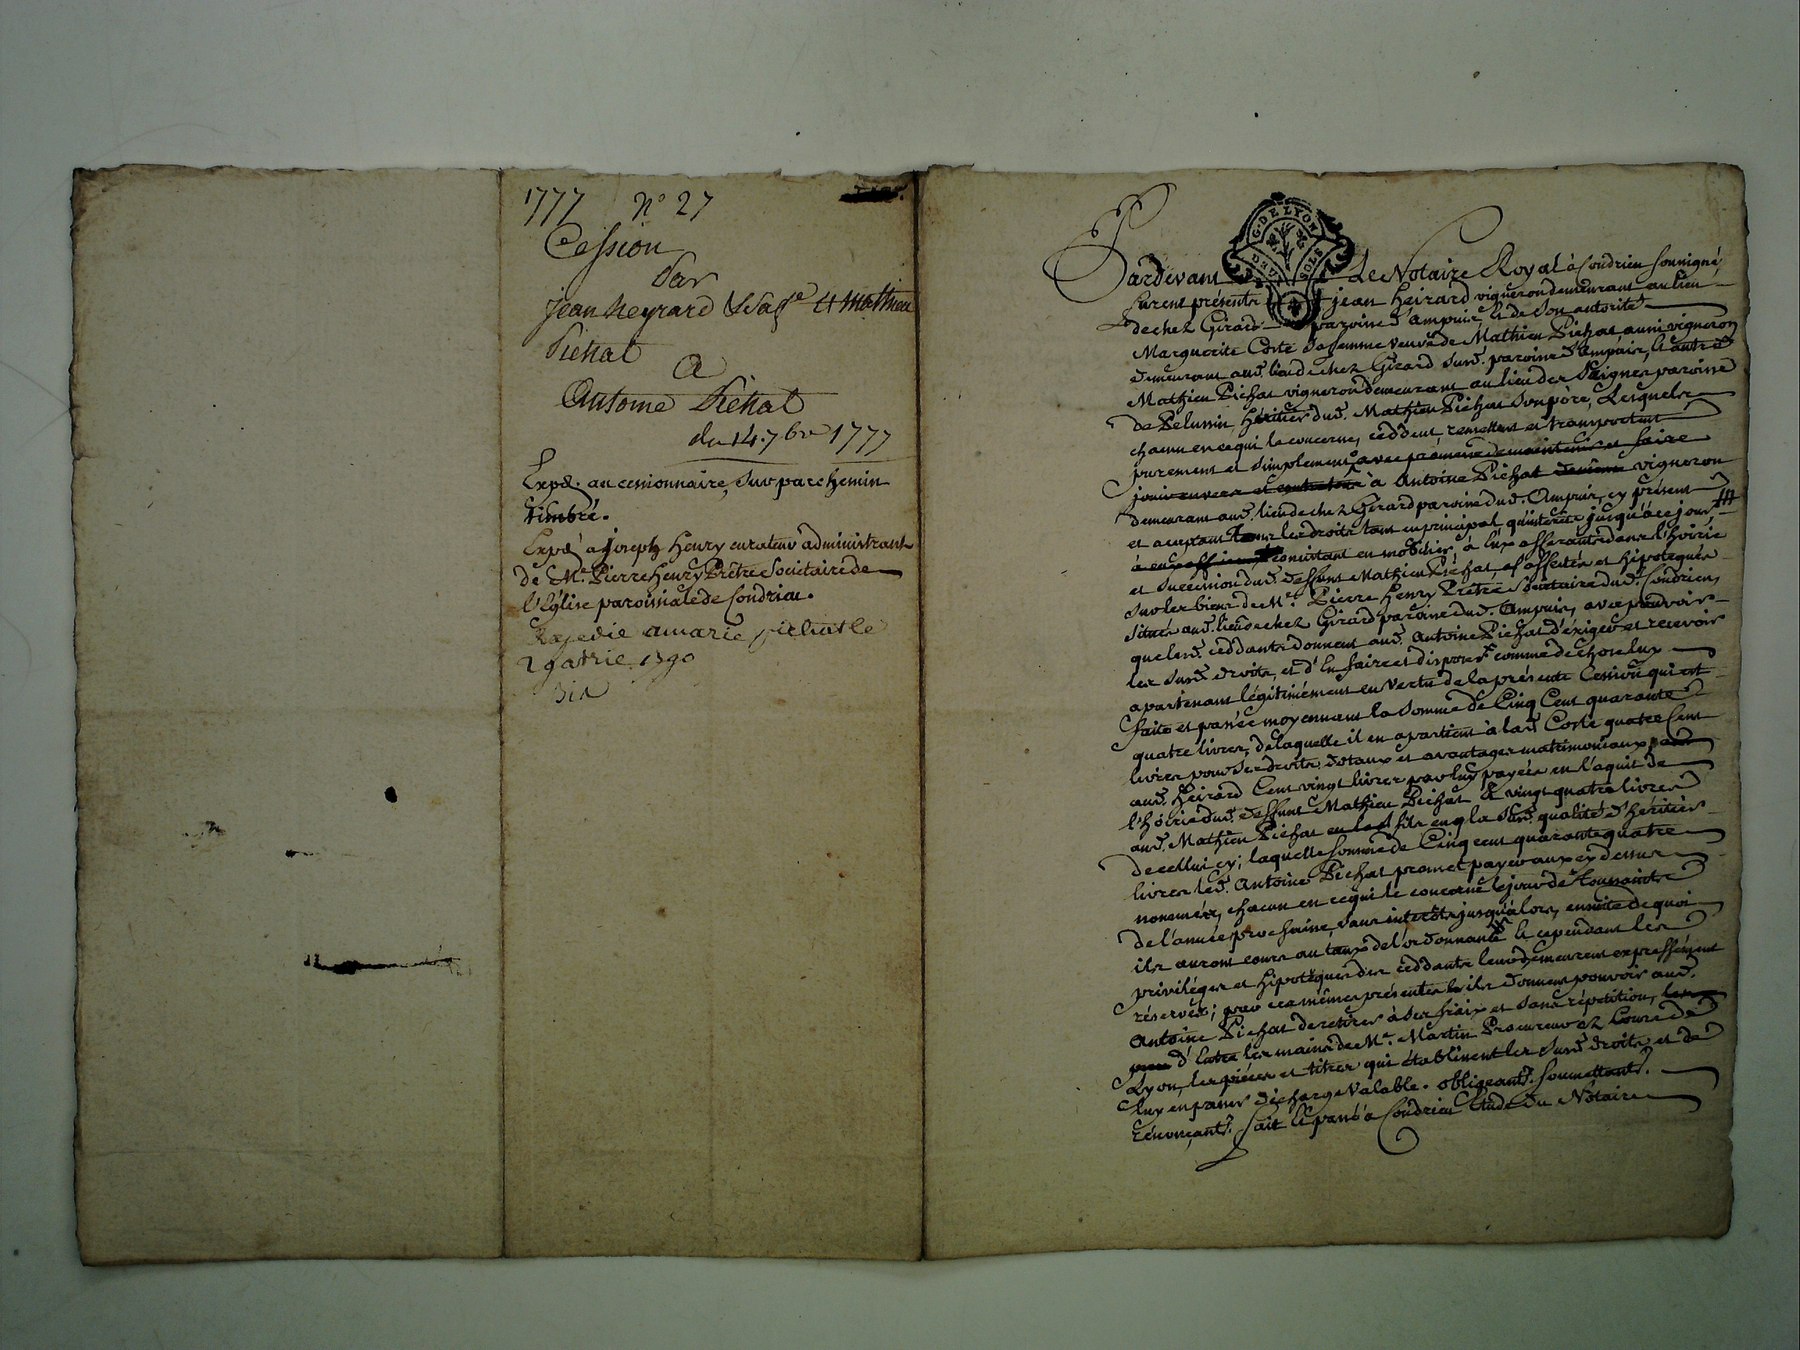 1777 N° 27
Cession
Par
jean heyrard & sa fe et Mathieu
Pichat
A
Antoine Pichat
du 14. 7bre 1777
Expé. au cessionnaire, sur parchemin
timbré.
Expé a joseph Henry curateur administrant
de Me. Pierre Henry Prêtre Societaire de
l'Eglise paroissiale de Condrieu.
Expedié a marie pichat le
29
bis
G. DE LYON
DEUX SOLS
Pardevant Le Notaire Royal à Condrieu soussigné
furent présents jean Heirard vigneron demeurant au lieu
de chez Girard paroisse d'ampuis, et de son autorité
Marguerite Coste sa femme veuve de Mathieu Pichat aussi vigneron
demeurant aud. lieu de chez Girard susd. paroisse d'Ampuis, et autre
Mathieu Pichat vigneron demeurant au lieu des paroisse
de Pelussin, héritier dud. Mathieu Pichat son père, Lesquels
chacun en ce qui le concerne, cèddent, remettent et transportent
purement et simplement avec promesse de maintenir et faire
jouir envers et contre tous à Antoine Pichat vigneron
demeurant aud. lieu de chez Girard paroisse dud. Ampuis, cy présent
et acceptant tous les droits tant en principal, qu'interêts jusqu'à ce jour
consistant en mobilier, à eux afferants dans l'hoirie
et succession dud. deffunt Mathieu Pichat, et affectés et hipotequés
sur les biens de Me. Pierre Henry Prêtre Societaire dud. Condrieu,
situés aud. lieu de chez Girard paroisse dud. Ampuis, avec pouvoir
que lesd. cèddants donnent aud. Antoine Pichat d'éxiger et recevoir
les susd. droits, et d'En faire et disposer comme de chose luy
apartenant légitimement en vertu de la présente Cession qui est
faite et passée moyennant la somme de Cinq Cent quarante
quatre livres, de laquelle il en apartient à lad. Coste quatre Cent
livres pour ses droits dotaux et avantages matrimoniaux,
aud. Heirard Cent vingt livres par luy payées en l'aquit de
l'hoirie dud. deffunt Mathieu Pichat & vingt quatre livres
aud. Mathieu Pichat fils en la susd. qualité d'héritier
de cellui cy; laquelle somme de Cinq cent quarante quatre
livres led. Antoine Pichat promet payer aux cy dessus
nommés, chacun en ce qui le concerne le jour de toussaints
de l'année prochaine, sans interêts jusqu'alors, ensuite de quoi
ils auront cours au taux de l'ordonnance, et cependant les
priviléges et hipotèques des cèddants leur demeurent expressément
réservés; par ces mêmes présentes ils donnent pouvoir aud.
Antoine Pichat de retirer à ses fraix et sans répetition,
d'Entre les mains de Me. Martin Procureur ez Cours de
Lyon, les pièces et titres qui établissent les susd. droits, et de
luy en passer décharge valable. obligeants. soumettants.
rénonçants. fait et passé à Condrieu Etude du Notaire